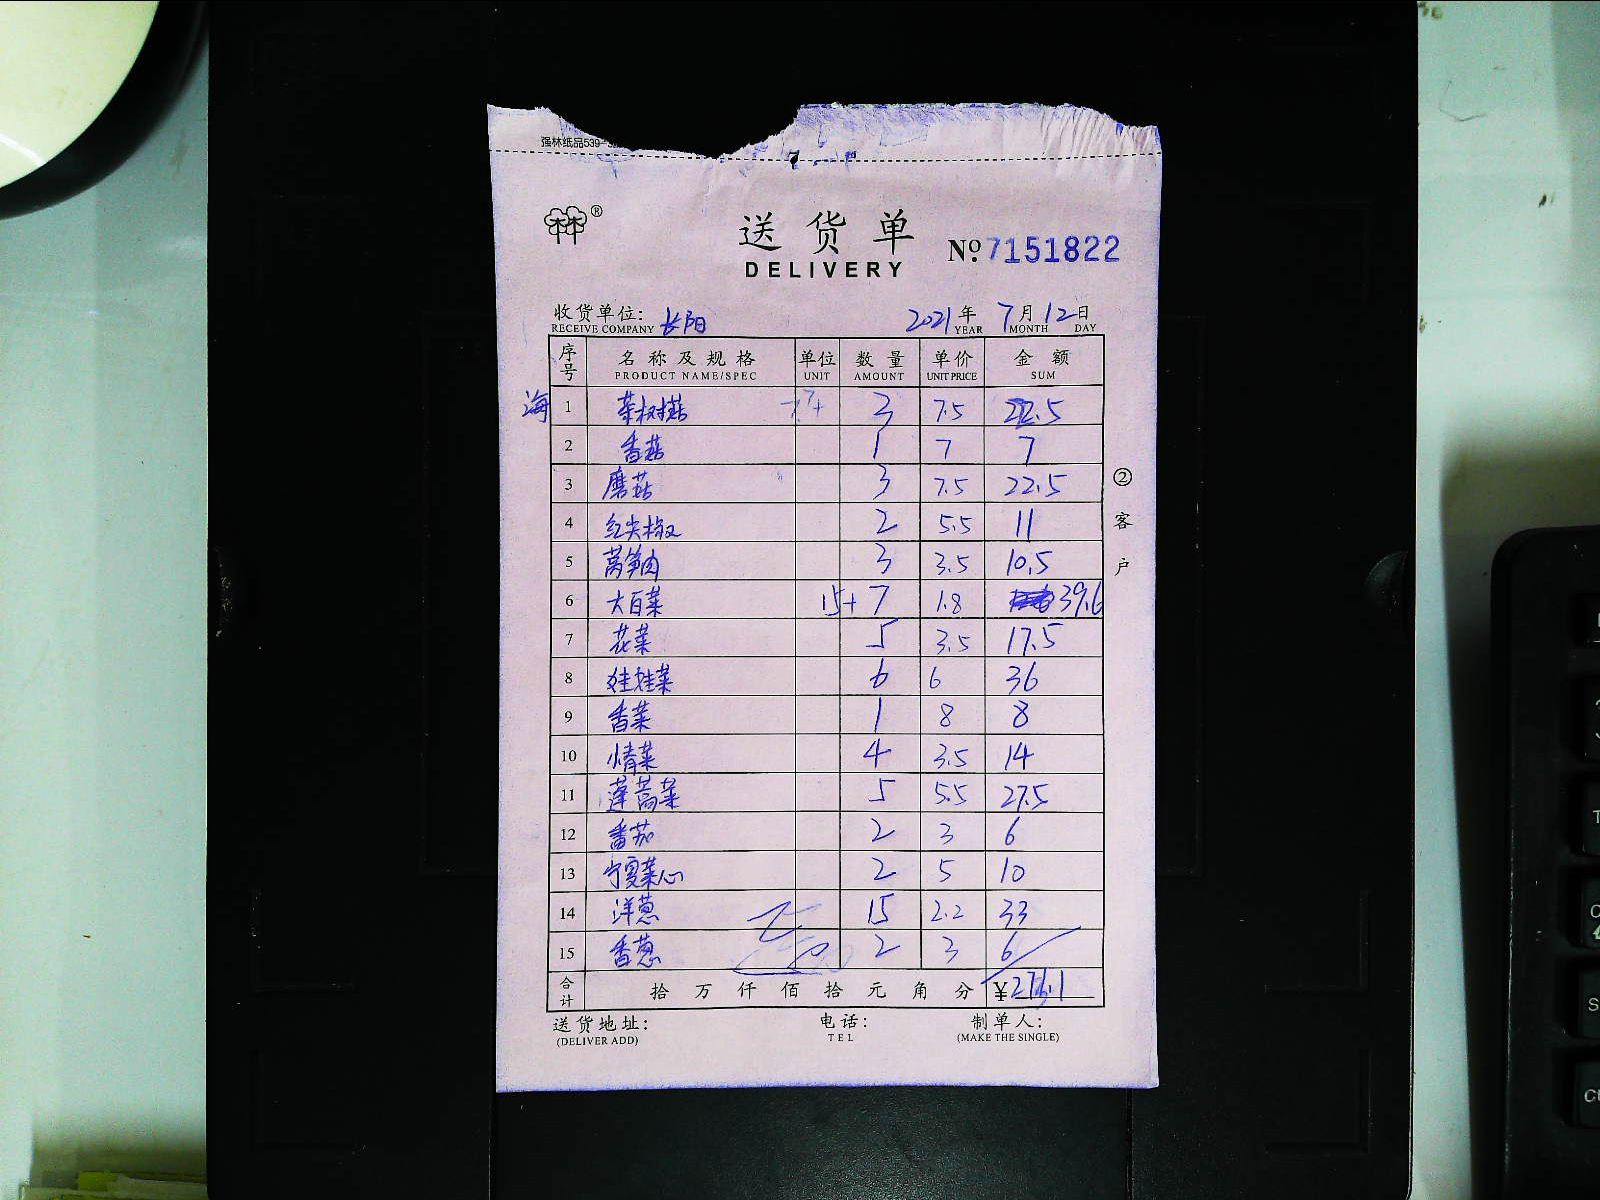 强林纸品539-3
®
送货单
DELIVERY
№: 7151822
收货单位: 长阳 2021年 7月12日
RECEIVE COMPANY YEAR MONTH DAY
序号 名称及规格 单位 数量 单价 金额
PRODUCT NAME/SPEC UNIT AMOUNT UNIT PRICE SUM
海 1 茶树菇 3 7.5 22.5
2 香菇 1 7 7
3 磨菇 3 7.5 22.5
4 红尖椒 2 5.5 11
5 莴笋肉 3 3.5 10.5
6 大白菜 15+7 1.8 39.6
7 花菜 5 3.5 17.5
8 娃娃菜 6 6 36
9 香菜 1 8 8
10 情菜 4 3.5 14
11 蓬蒿菜 5 5.5 27.5
12 番茄 2 3 6
13 宁夏菜心 2 5 10
14 洋葱 15 2.2 33
15 香葱 2 3 6
合计 拾万仟佰拾元角分 ¥271.1
②客户
送货地址: 电话: 制单人:
(DELIVER ADD) TEL (MAKE THE SINGLE)